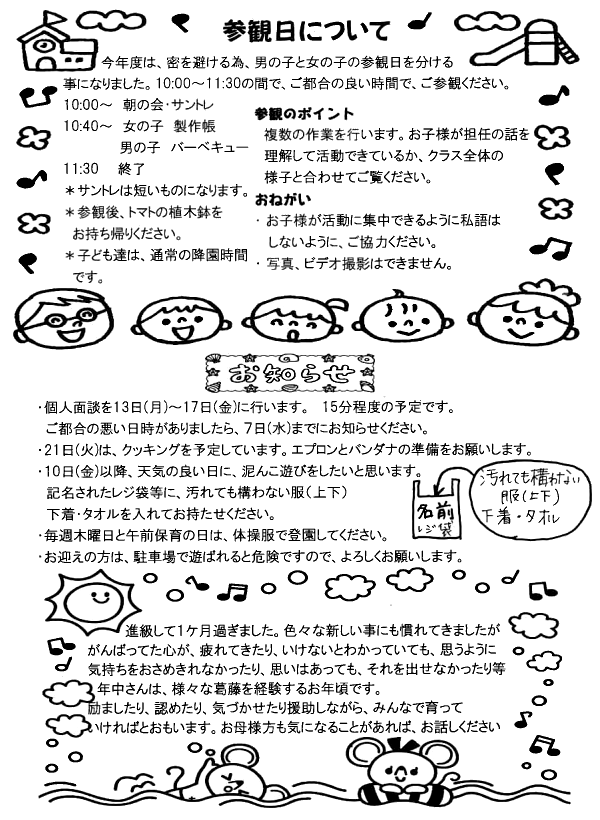 参観日について
今年度は、密を避ける為、男の子と女の子の参観日を分ける
事になりました。10:00～11:30の間で、ご都合の良い時間で、ご参観ください。
10:00～ 朝の会・サントレ
10:40～ 女の子 製作帳
男の子 バーベキュー
11:30 終了
＊サントレは短いものになります。
＊参観後、トマトの植木鉢を
お持ち帰りください。
＊子ども達は、通常の降園時間
です。
参観のポイント
複数の作業を行います。お子様が担任の話を
理解して活動できているか、クラス全体の
様子と合わせてご覧ください。
おねがい
・お子様が活動に集中できるように私語は
しないように、ご協力ください。
・写真、ビデオ撮影はできません。
お知らせ
・個人面談を13日(月)～17日(金)に行います。 15分程度の予定です。
ご都合の悪い日時がありましたら、7日(水)までにお知らせください。
・21日(火)は、クッキングを予定しています。エプロンとバンダナの準備をお願いします。
・10日(金)以降、天気の良い日に、泥んこ遊びをしたいと思います。
記名されたレジ袋等に、汚れても構わない服(上下)
下着・タオルを入れてお持たせください。
名前
レジ袋
汚れても構わない
服(上下)
下着・タオル
・毎週木曜日と午前保育の日は、体操服で登園してください。
・お迎えの方は、駐車場で遊ばれると危険ですので、よろしくお願いします。
進級して1ケ月過ぎました。色々な新しい事にも慣れてきましたが
がんばってた心が、疲れてきたり、いけないとわかっていても、思うように
気持ちをおさめきれなかったり、思いはあっても、それを出せなかったり等
年中さんは、様々な葛藤を経験するお年頃です。
励ましたり、認めたり、気づかせたり援助しながら、みんなで育って
いければとおもいます。お母様方も気になることがあれば、お話しください